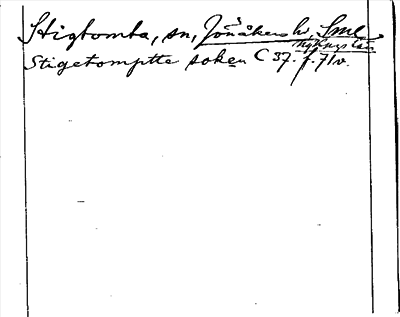 Stigtomta, sn, Jönåkers hd, Sml
Nyköpings län
Stigetomptte soken C 37. f. 71v.